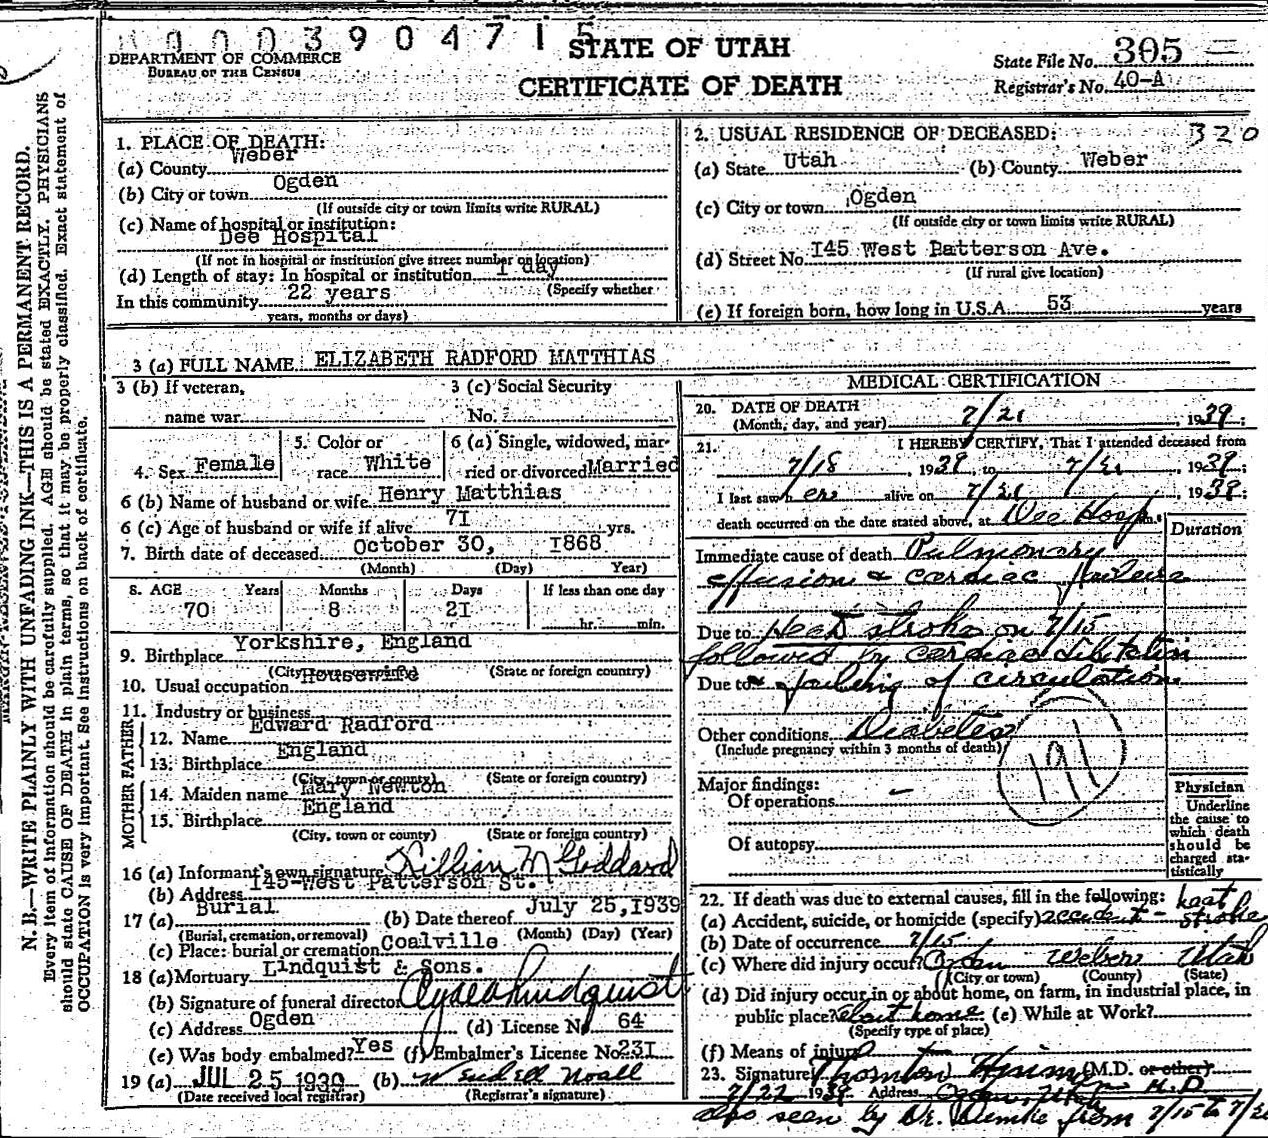 0003904715
STATE OF UTAH
CERTIFICATE OF DEATH
DEPARTMENT OF COMMERCE
BUREAU OF THE CENSUS
State File No. 305
Registrar's No. 40-A
N. B.—WRITE PLAINLY WITH UNFADING INK—THIS IS A PERMANENT RECORD.
Every item of information should be carefully supplied. AGE should be stated EXACTLY. PHYSICIANS
should state CAUSE OF DEATH in plain terms, so that it may be properly classified. Exact statement of
OCCUPATION is very important. See instructions on back of certificate.
1. PLACE OF DEATH:
(a) County Weber
(b) City or town Ogden
(If outside city or town limits write RURAL)
(c) Name of hospital or institution:
Dee Hospital
(If not in hospital or institution give street number or location)
(d) Length of stay: In hospital or institution 1 day
(Specify whether
In this community 22 years
years, months or days)
2. USUAL RESIDENCE OF DECEASED: 320
(a) State Utah (b) County Weber
(c) City or town Ogden
(If outside city or town limits write RURAL)
(d) Street No. 145 West Patterson Ave.
(If rural give location)
(e) If foreign born, how long in U.S.A. 53 years
3 (a) FULL NAME ELIZABETH RADFORD MATTHIAS
3 (b) If veteran, 3 (c) Social Security
name war No.
4. Sex Female 5. Color or race White 6 (a) Single, widowed, married or divorced Married
6 (b) Name of husband or wife Henry Matthias
6 (c) Age of husband or wife if alive 71 yrs.
7. Birth date of deceased October 30, 1868
(Month) (Day) Year)
8. AGE Years Months Days If less than one day
70 8 21 hr. min.
9. Birthplace Yorkshire, England
(City (State or foreign country)
10. Usual occupation Housewife
11. Industry or business
FATHER
12. Name Edward Radford
13. Birthplace England
(City, town or county) (State or foreign country)
MOTHER
14. Maiden name Mary Newton
15. Birthplace England
(City, town or county) (State or foreign country)
16 (a) Informant's own signature Lillian M Goddard
(b) Address 145-West Patterson St.
17 (a) Burial (b) Date thereof July 25, 1939
(Burial, cremation, or removal) (Month) (Day) (Year)
(c) Place: burial or cremation Coalville
18 (a) Mortuary Lindquist & Sons.
(b) Signature of funeral director Clyde Lindquist
(c) Address Ogden (d) License No 64
(e) Was body embalmed? Yes (f) Embalmer's License No. 231
19 (a) JUL 25 1939 (b) Wendell Noall
(Date received local registrar) (Registrar's signature)
MEDICAL CERTIFICATION
20. DATE OF DEATH 7/21, 1939;
(Month, day, and year)
21. I HEREBY CERTIFY, That I attended deceased from
7/18, 1939, to 7/21, 1939;
I last saw her alive on 7/21, 1939;
death occurred on the date stated above, at Dee Hosp m.
Duration
Immediate cause of death Pulmonary
effusion & cardiac failure
Due to Heat stroke on 7/15
followed by cardiac dilitation
Due to & failing of circulation
Other conditions Diabetes
(Include pregnancy within 3 months of death)
191
Major findings:
Of operations -
Of autopsy
Physician
Underline
the cause to
which death
should be
charged sta-
tistically
22. If death was due to external causes, fill in the following: heat
(a) Accident, suicide, or homicide (specify) accident - stroke
(b) Date of occurrence 7/15
(c) Where did injury occur? Ogden Weber Utah
(City or town) (County) (State)
(d) Did injury occur in or about home, on farm, in industrial place, in
public place? about home (e) While at Work?
(Specify type of place)
(f) Means of injury
23. Signature (M.D. or other)
7/22 1939 Address Ogden, Utah M.D
also seen by Dr. from 7/15 to